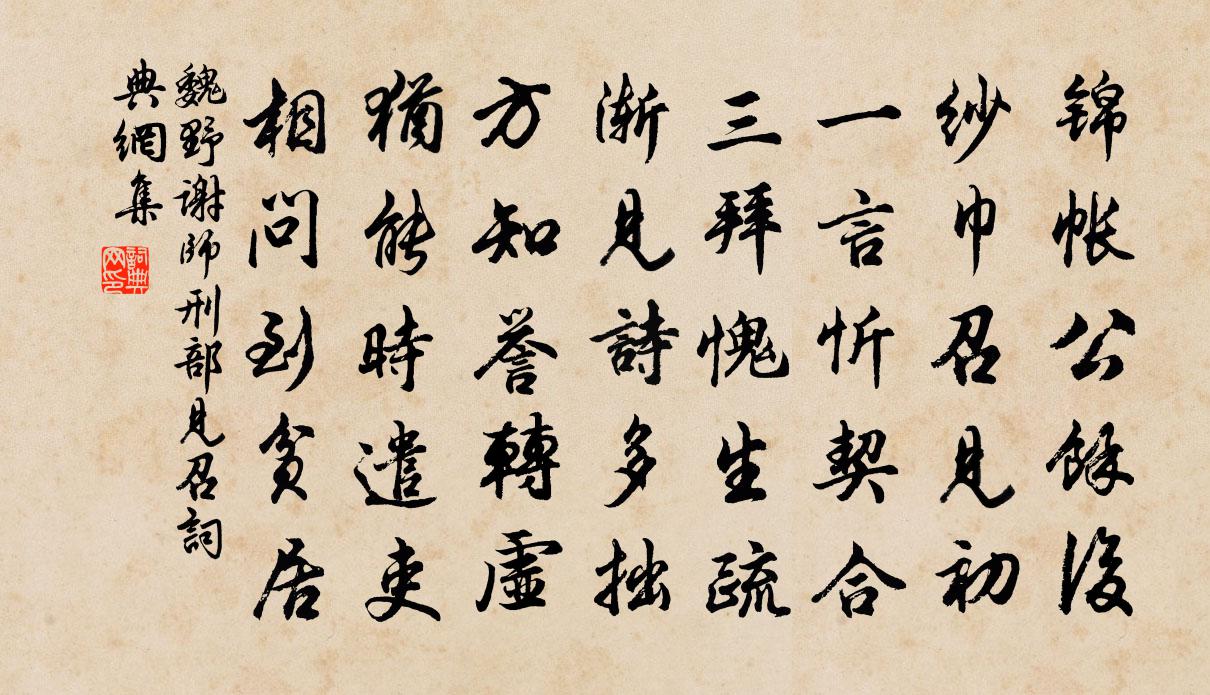 锦帐公餘後
纱巾召見初
一言忻契合
三拜愧生疏
渐見詩多拙
方知譽轉虛
猶能時遣吏
相問到貧居
魏野谢師刑部見召詞
典網集
詞典網印